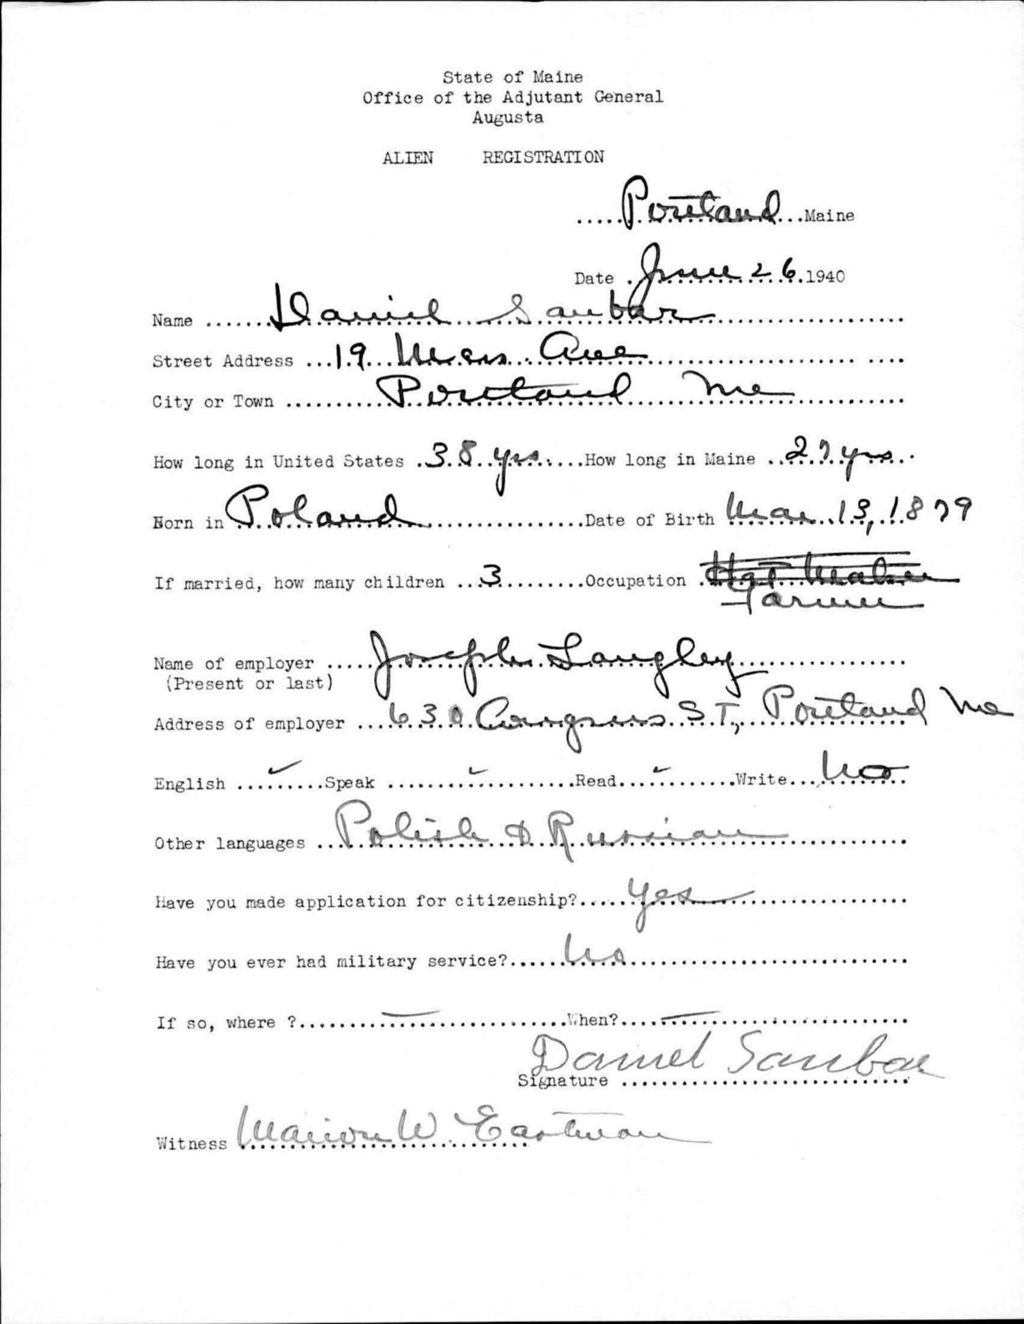 State of Maine
Office of the Adjutant General
Augusta
ALIEN REGISTRATION
.....Portland...Maine
Date .June 26.1940
Name .......Daniel Sanbar...................
Street Address ...19 Ave...................
City or Town ..........Portland Me...........
How long in United States .38 yrs.....How long in Maine ..27 yrs..
Born in Poland................Date of Birth Mar. 13, 1879
If married, how many children ...3.........Occupation .
Farmer
Name of employer .....Joseph Langley...............
(Present or last)
Address of employer ...630 Congress ST, Portland Me
English ...✓......Speak ........✓........Read...✓........Write...No...
Other languages ...Polish & Russian............
Have you made application for citizenship?......yes.................
Have you ever had military service?......No..........................
If so, where ?.......—................When?....—...................
Daniel Sanbar
Signature ............................
Witness Marion W Eastman